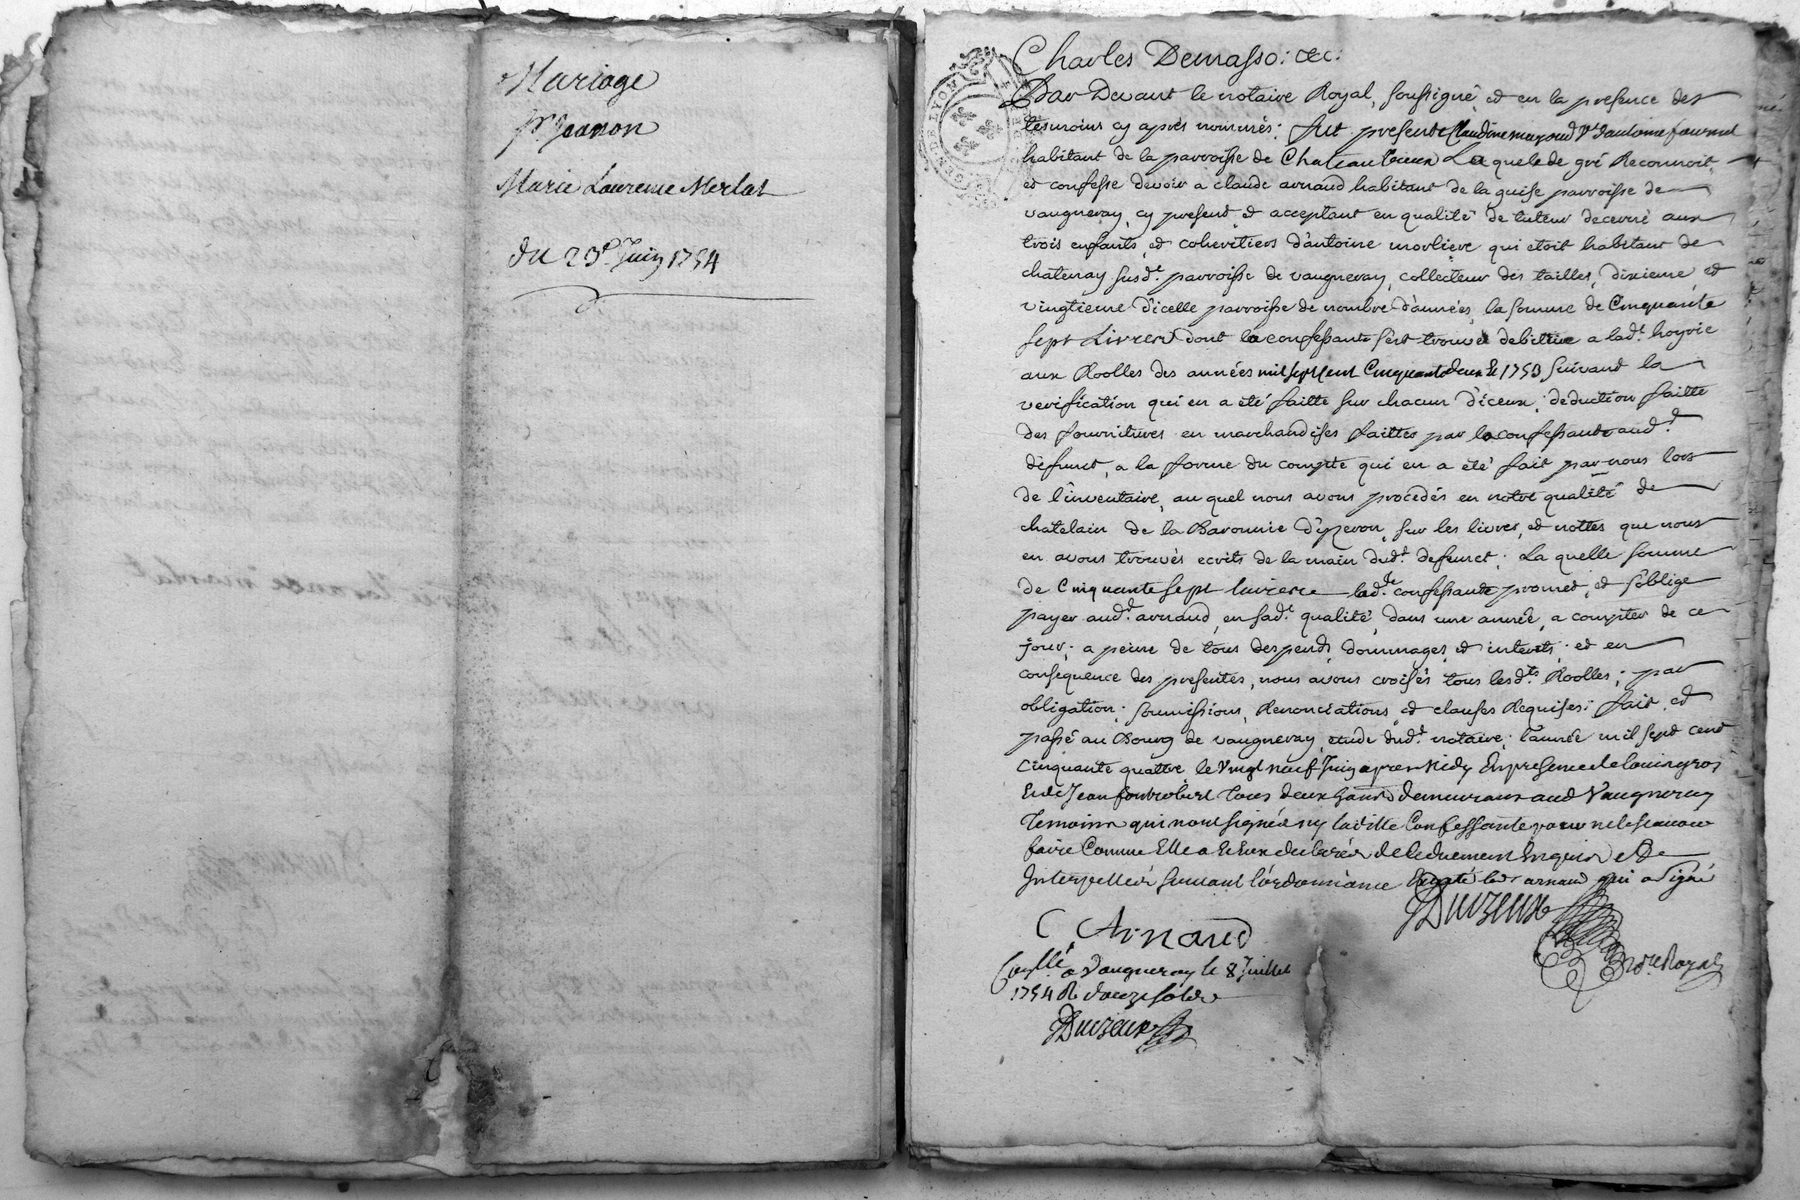 Mariage
Sr Jeanon
Marie Laurence Merlat
du 23e Juin 1754
GEN DE LYON
Charles Demasso: &c:
Par Devant le notaire Royal, soussigné et en la presence des
tesmoins cy après nommés; fut presente Claudine mazoud Ve d'antoine fournel
habitant de la parroisse de Chateauvieux Laquele de gré Reconnoit,
et confesse devoir a claude arnaud habitant de la guise parroisse de
vaugneray, cy present et acceptant en qualité de tuteur decerné aux
trois enfants, et coheritiers d'antoine morliere qui etoit habitant de
chatenay susd.e parroisse de vaugneray, collecteur des tailles, dixieme, et
vingtieme d'icelle parroisse de nombre d'années, la somme de Cinquante
sept Livres dont la confessante s'est trouvée debitrice a lad.e hoyrie
aux Roolles des années mil sept Cent Cinquante deux & 1753 suivant la
verification qui en a été faitte sur chacun d'iceux, deduction faitte
des fournitures en marchandises faittes par la confessante aud.t
défunct, a la forme du compte qui en a été fait par nous lors
de l'inventaire, au quel nous avons procedés en notre qualité de
chatelain de la Baronnie d'izeron, sur les livres, et nottes que nous
en avons trouvés ecrits de la main dud.t defunct; La quelle somme
de Cinquante sept livres lad.te confessante promet, et s'oblige
payer aud.t arnaud, en sad.e qualité, dans une année, a compter de ce
jour; a peine de tous despends, dommages, et interets; et en
consequence des presentes, nous avons croisés tous lesd.ts Roolles; par
obligation; soumissions, Renonciations, et clauses Requises: fait, et
passé au Bourg de vaugneray, etude dud.t notaire, l'année mil sept cent
cinquante quattre le Vingt neuf Juin apres Midy En presence de
Et de Jean tous deux demeurans aud Vaugneray
Temoins qui n'ont signés ny laditte Confessante pour ne le scavoir
faire Comme Elle a & Eux declarés de ce duement Enquis et
Interpellés suivant l'ordonnance Excepté led arnaud qui a signé
C Arnaud
Duizeux
n.re Royal
Conllé a Vaugneray le 8 Juillet
1754 R douze sols
Duizeux